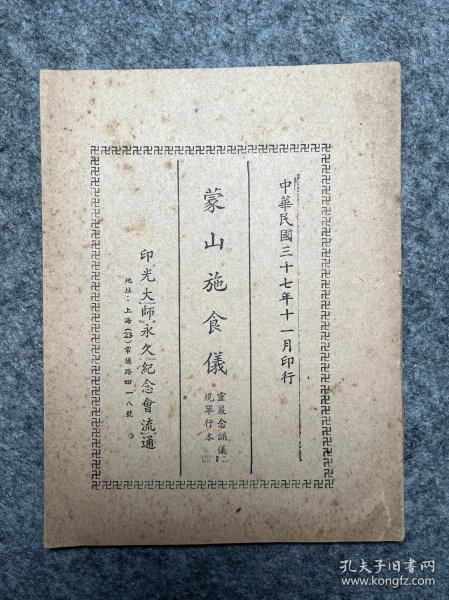 中華民國三十七年十一月印行
蒙山施食儀
靈巖念誦儀
規單行本
印光大師永久紀念會流通
地址：上海(23)常德路四一八號
孔夫子旧书网
www.kongfz.com